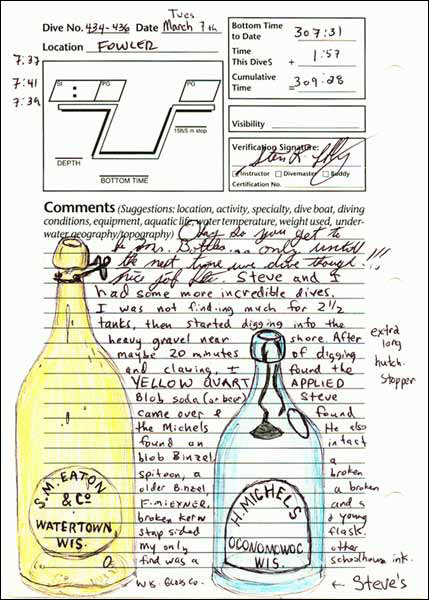 Tues
Dive No. 434-436 Date March 7th
Location FOWLER
7:37
7:41
7:39
SI PG PG
15ft/5 m stop
DEPTH
BOTTOM TIME
Bottom Time to Date 307:31
Time This Dives + 1:57
Cumulative Time = 309:28
Visibility
Verification Signature:
Instructor Divemaster Buddy
Certification No.
Comments (Suggestions: location, activity, specialty, dive boat, diving
conditions, equipment, aquatic life, water temperature, weight used, under-
water geography/topography) Okay so you get to
be Mr. Bottles... only until
the next time we dive though!!!
nice job Steve and I
had some more incredible dives.
I was not finding much for 2 1/2
tanks, then started digging into the
heavy gravel near shore. After
maybe 20 minutes of digging
and clawing, I found the
YELLOW QUART APPLIED
Blob soda (or beer) Steve
came over & found
the Michels He also
found an intact
blob Binzel, a
spitoon, a broken
older Binzel, a broken
F. MIEYNER, and a
broken Kern & young
strap sided flask.
my only other
find was a schoolhouse ink.
extra
long
hutch.
stopper
S.M. EATON
& Co
WATERTOWN
WIS.
H. MICHELS
OCONOMOWOC
WIS.
WIS. GLASS CO.
← Steve's